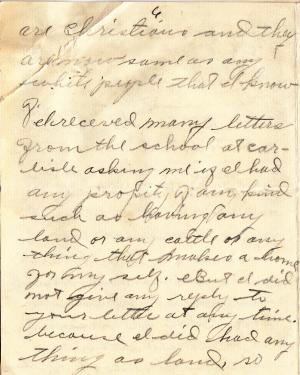 4
are christians and they
are now same as any
white people that I know
I received many letters
from the school at car-
lisle asking me if I had
any proprity of any kind
such as having any
land or any cattle or any
thing that makes a home
for my self. But I did
not give any reply to
your letter at any time.
because I did had any
thing as land, so